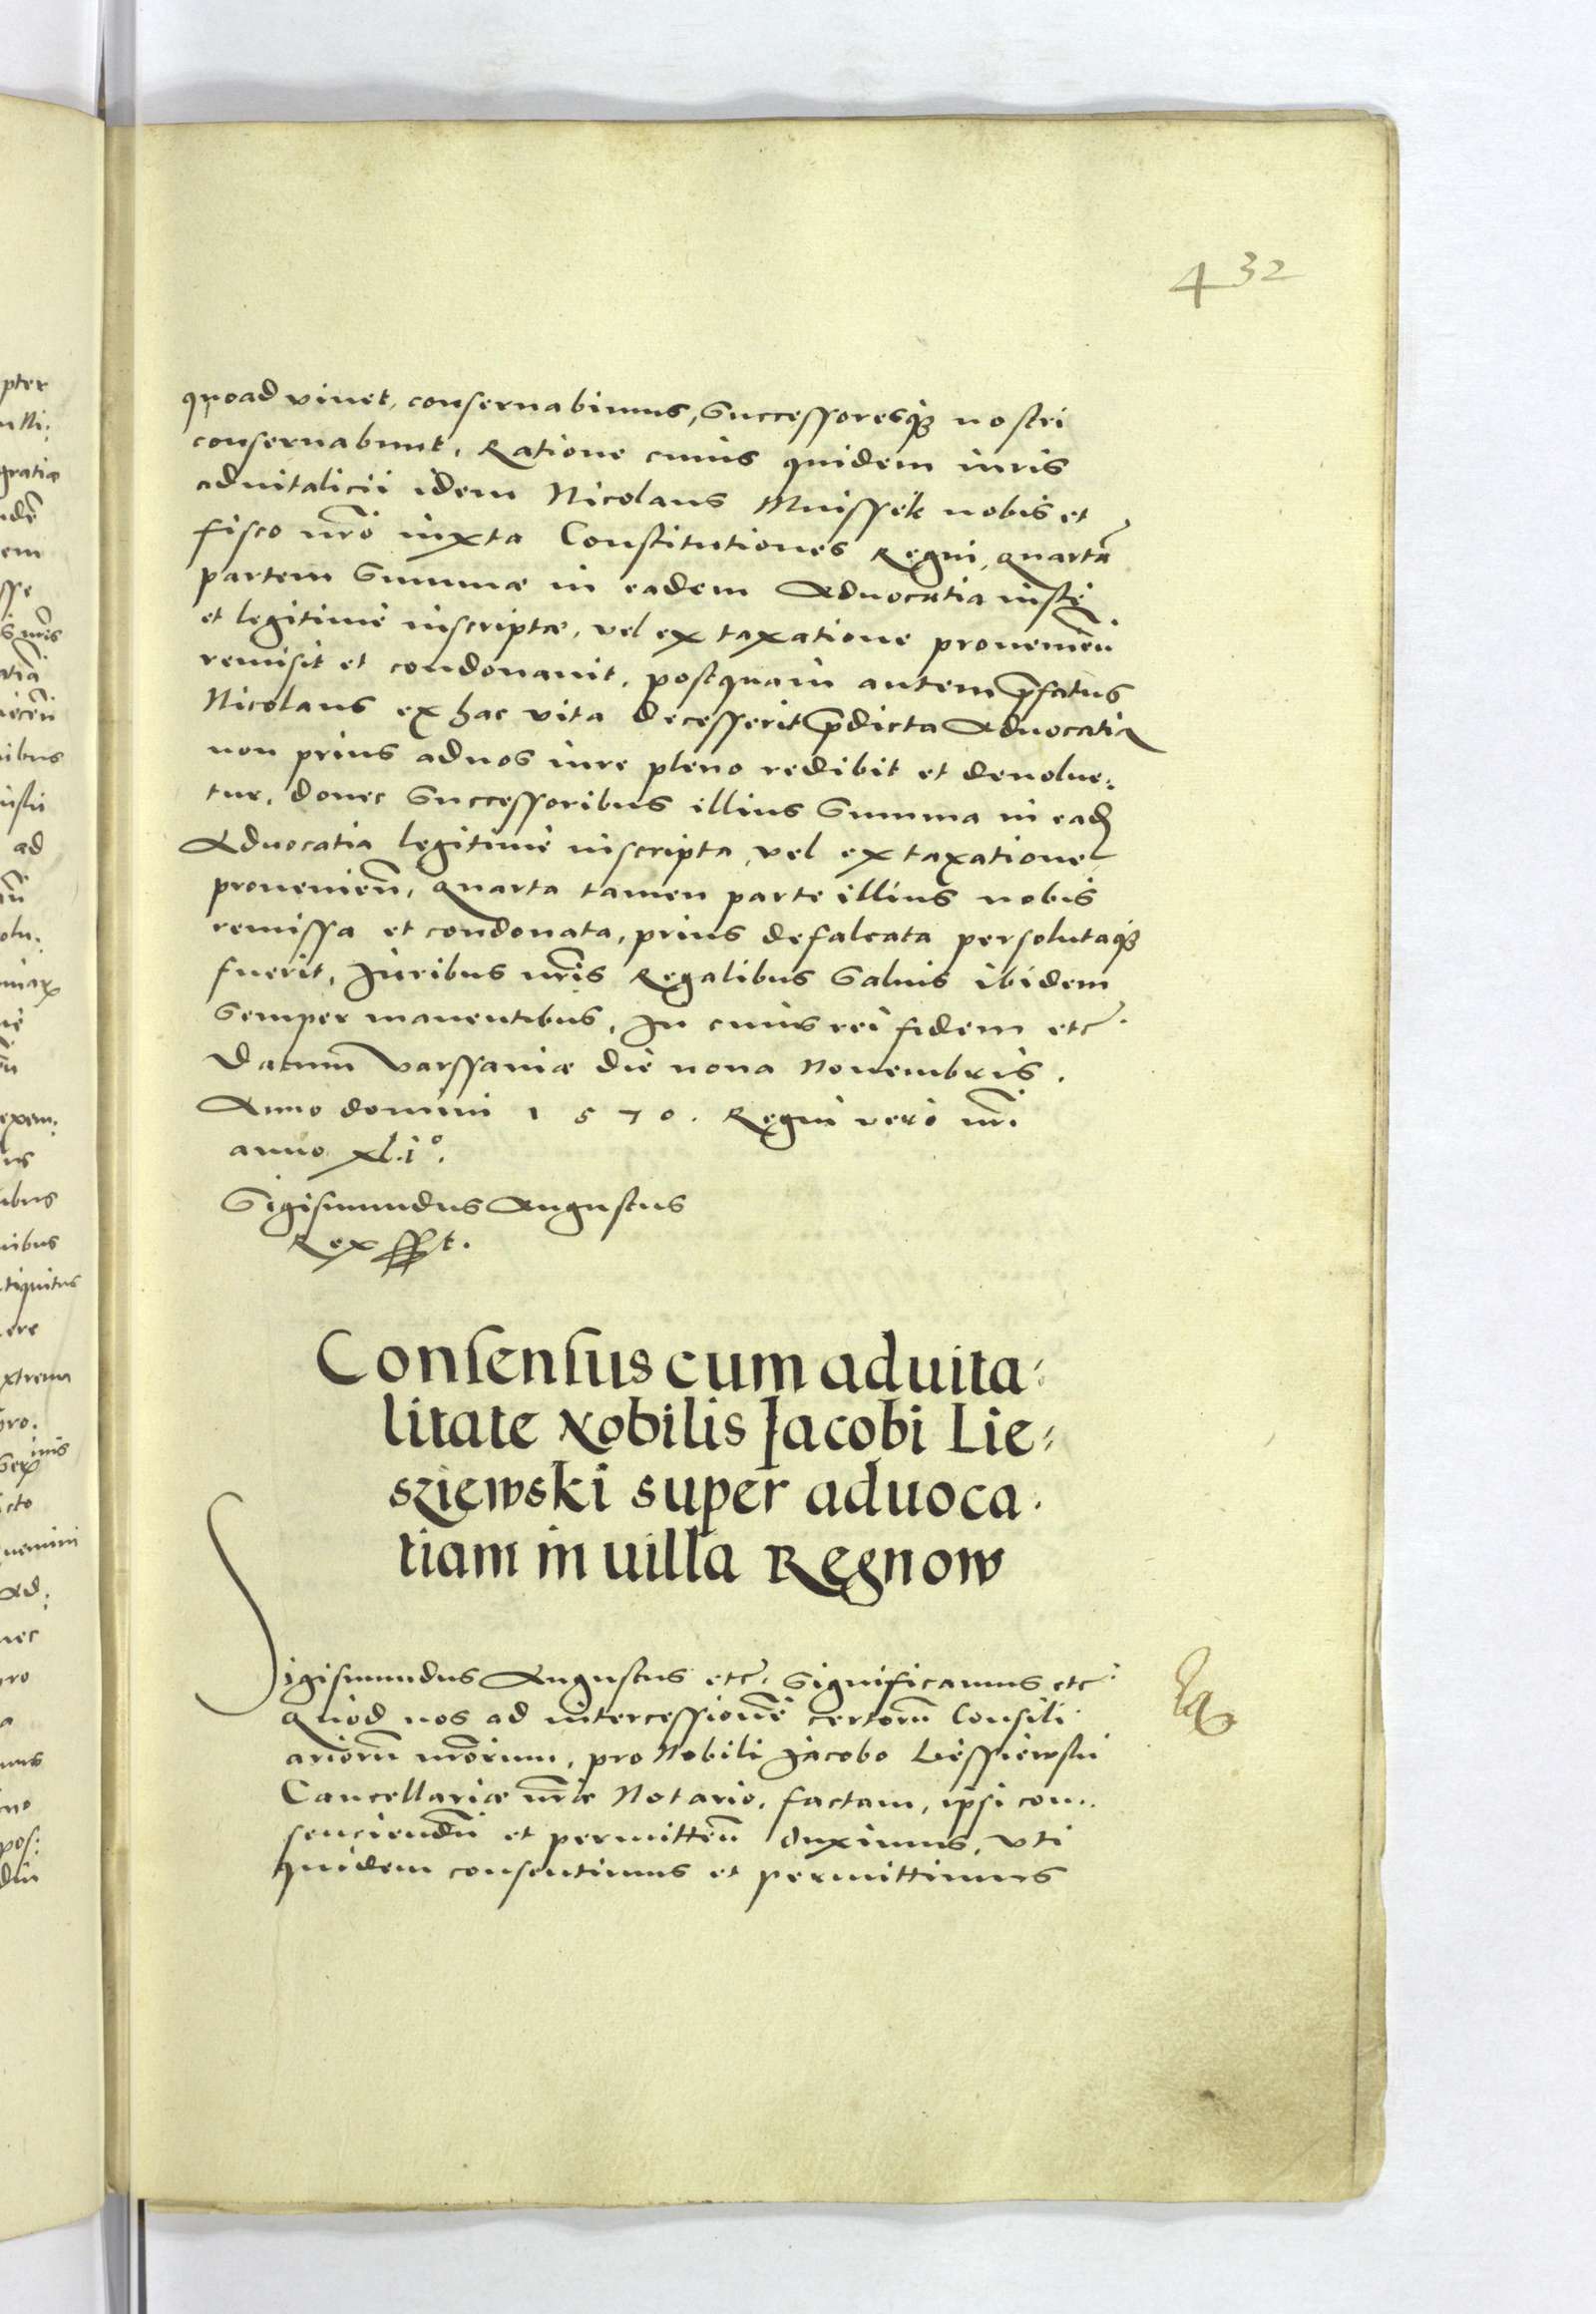 432
quoad viuet, conseruabimus, Successoresq₃ nostri
conseruabunt. Ratione cuius quidem iuris
aduitalicii idem Nicolaus Mnissek nobis et
fisco nr̃o iuxta Constitutiones Regni, quartã
partem Summæ in eadem Aduocatia iuste
et legitime inscriptæ, vel ex taxatione prouenieñ.
remisit et condonauit. postquam autem p̃fatus
Nicolaus ex hac vita decesserit p̃dicta Aduocatia
non prius ad nos iure pleno redibit et deuolue⸗
tur, donec Successoribus illius Summa in ead̃
Aduocatia legitime inscripta, vel ex taxatione
prouenieñ, quarta tamen parte illius nobis
remissa et condonata, prius defalcata persolutaq₃
fuerit, Iuribus nr̃is Regalibus Saluis ibidem
Semper manentibus. In cuius rei fidem etc̃.
Datum Varssauiæ die nona Nouembris.
Anno domini 1570. Regni vero nr̃i
anno xl.i°.
Sigismundus Augustus
Rex sst.
Consensus cum aduita⸗
litate Nobilis Jacobi Lie⸗
sziewski super aduoca⸗
tiam in uilla Regnow
Sigismundus Augustus etc̃. Significamus etc̃
Quod nos ad intercessionẽ certorũ Consili⸗
ariorũ nr̃orum, pro Nobili Jacobo Liessiewski
Cancellariæ nr̃æ Notario, factam, ipsi con⸗
senciendũ et permitteñ duximus, vti
quidem consentimus et permittimus